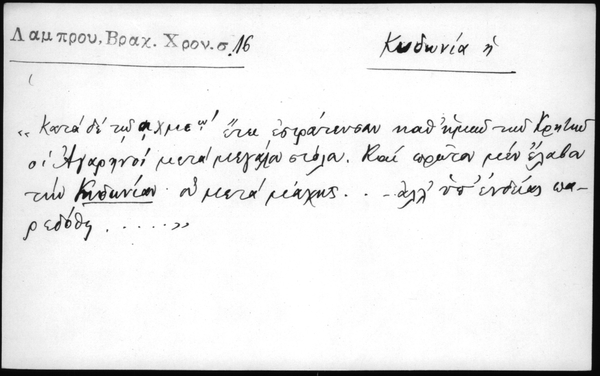 Λαμπρου, Βραχ. Χρον. σ. 16
Κυδωνία ἡ
„ Κατά δέ τῷ αχμε" ἔτει ἐστράτευσαν καθ' ἡμῶν τῶν Κρητῶν
οἱ Ἀγαρηνοί μετά μεγάλου στόλου. Καί πρῶτον μέν ἔλαβον
τήν Κυδωνίαν οὐ μετά μάχης . . — ἀλλ' ὑπ' ἐνδείας πα-
ρεδόθη . . . . . "